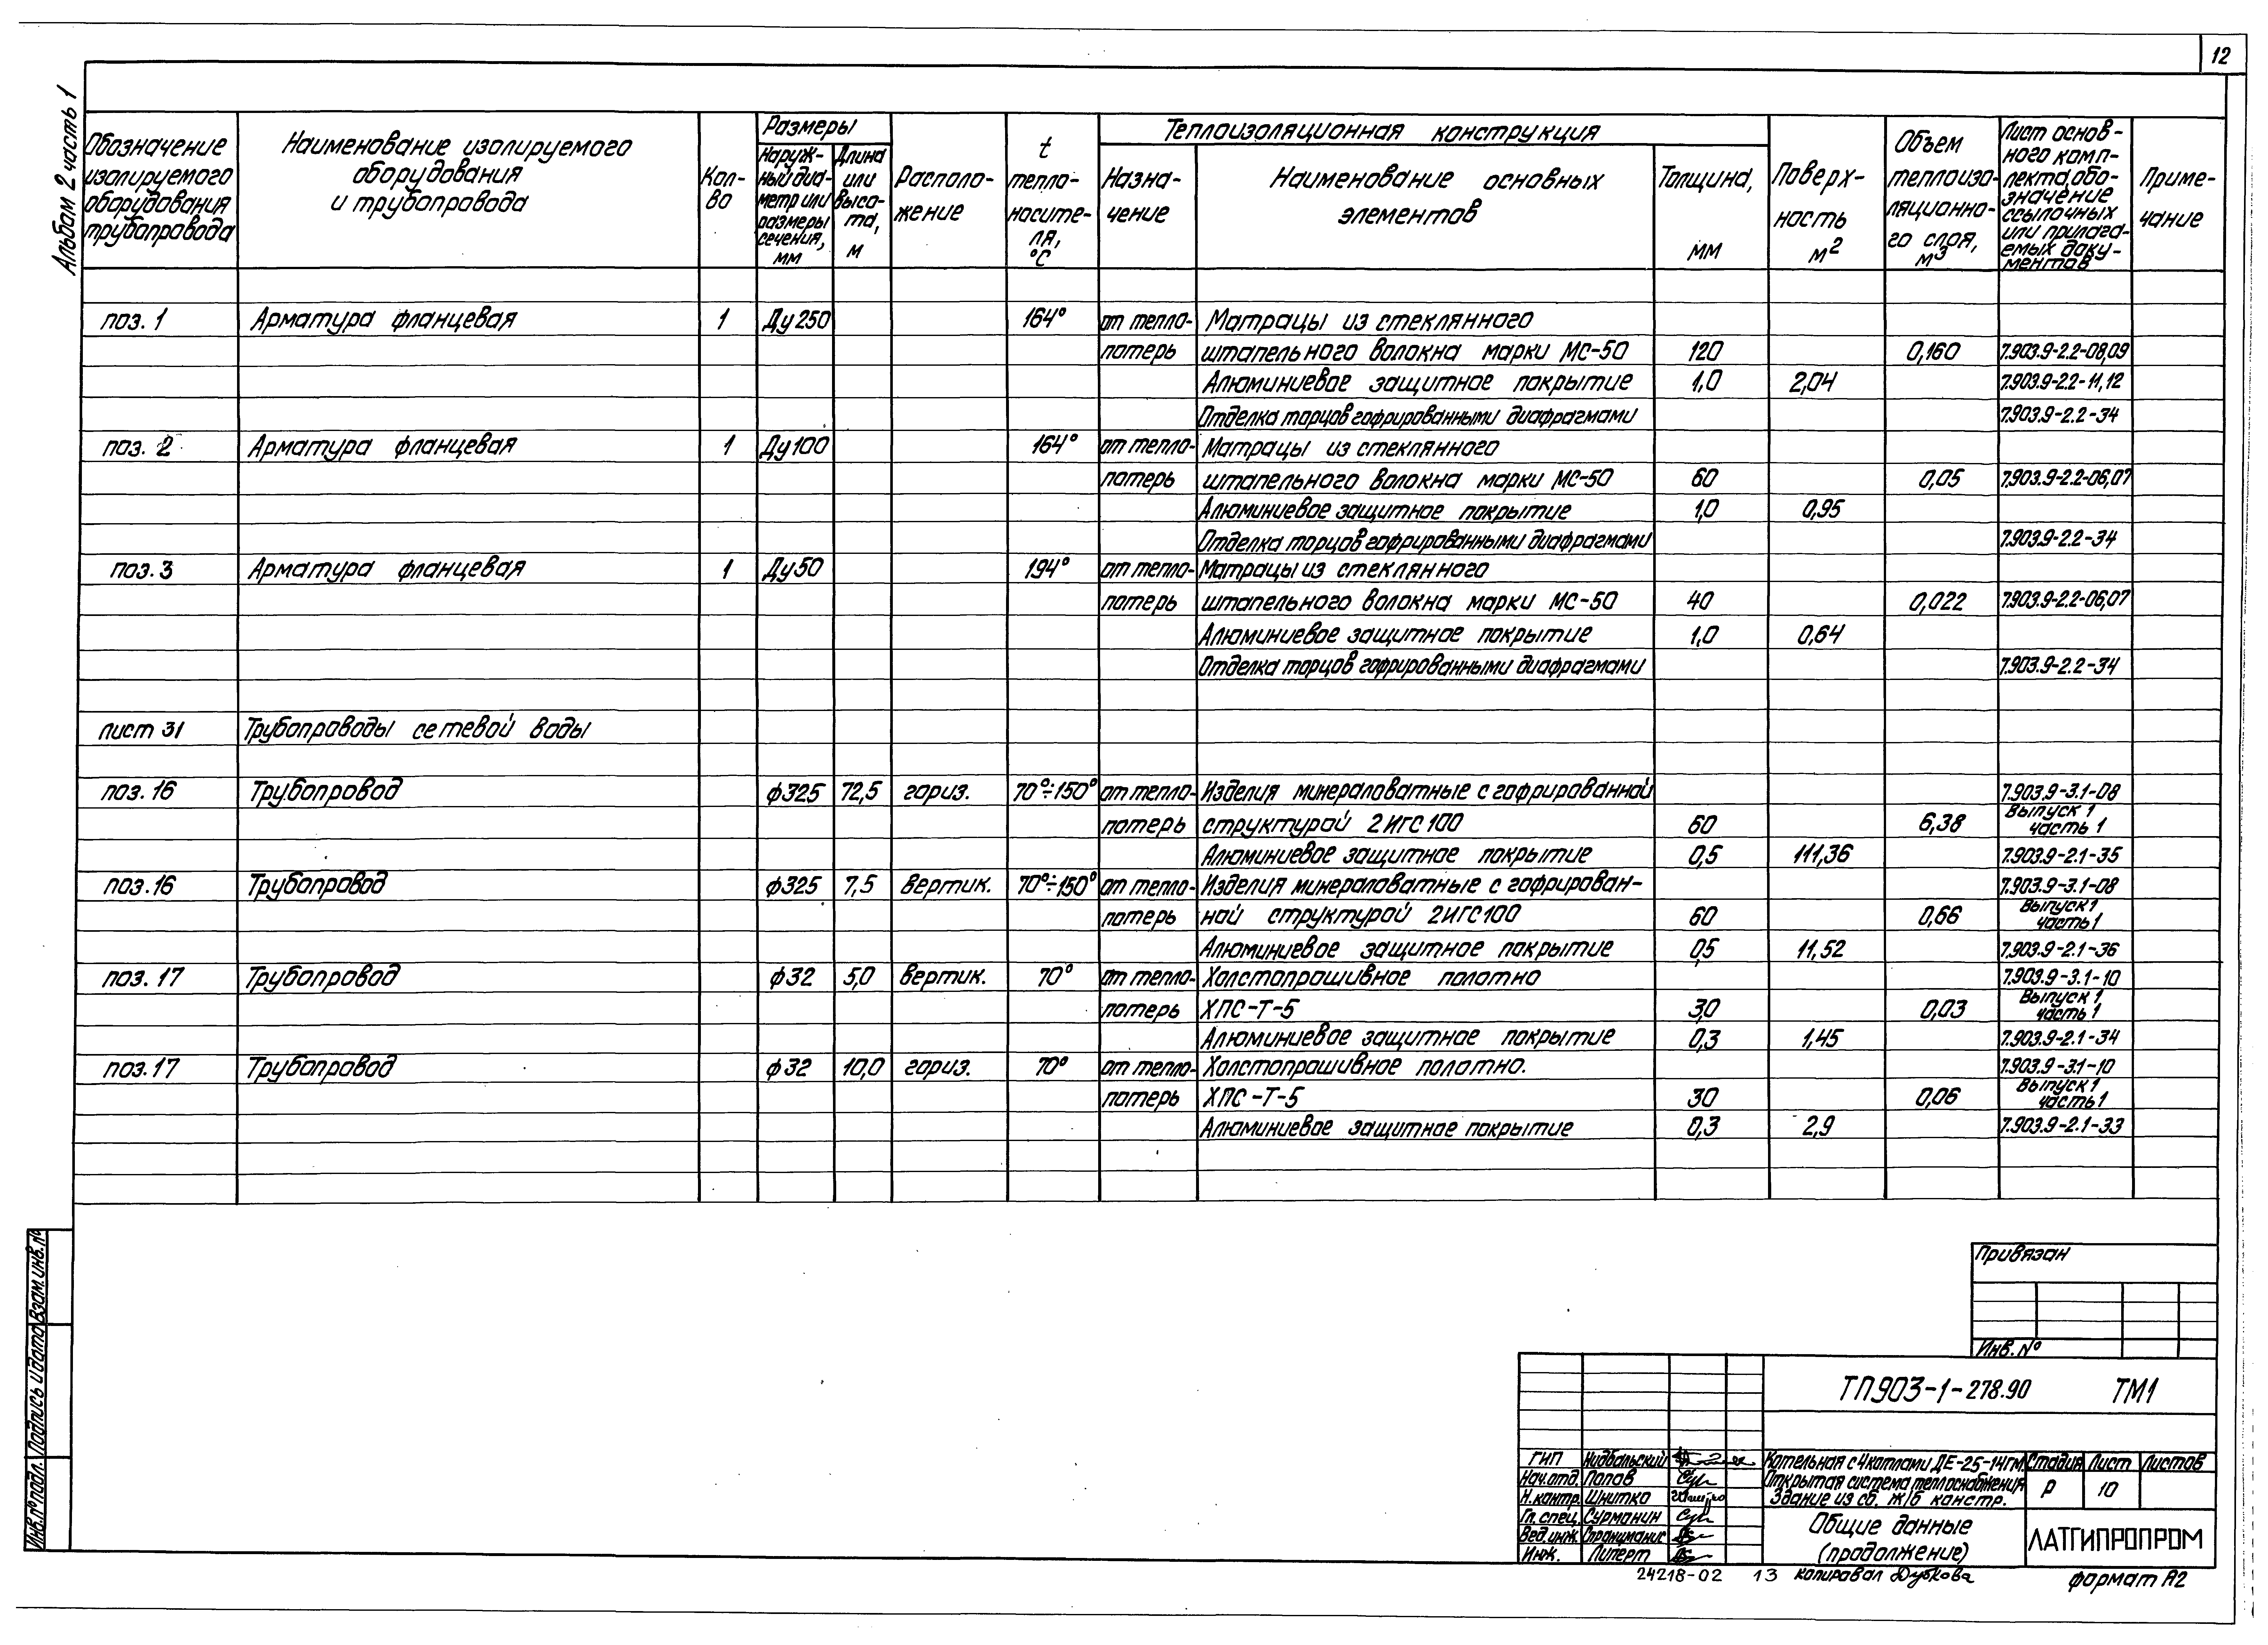 12
Альбом 2 часть 1
Обозначение изолируемого оборудования трубопровода
Наименование изолируемого оборудования и трубопровода
Кол-во
Размеры
Наруж-ный диа-метр или размеры сечения, мм
Длина или высо-та, м
Располо-жение
t тепло-носите-ля, °С
Теплоизоляционная конструкция
Назна-чение
Наименование основных элементов
Толщина, мм
Поверх-ность м²
Объем теплоизо-ляционно-го слоя, м³
Лист основ-ного комп-лекта, обо-значение ссылочных или прилага-емых доку-ментов
Приме-чание
поз. 1 Арматура фланцевая 1 Ду 250 164° от тепло- Матрацы из стеклянного
потерь штапельного волокна марки МС-50 120 0,160 7.903.9-2.2-08,09
Алюминиевое защитное покрытие 1,0 2,04 7.903.9-2.2-11,12
Отделка торцов гофрированными диафрагмами 7.903.9-2.2-34
поз. 2 Арматура фланцевая 1 Ду 100 164° от тепло- Матрацы из стеклянного
потерь штапельного волокна марки МС-50 60 0,05 7.903.9-2.2-06,07
Алюминиевое защитное покрытие 1,0 0,95
Отделка торцов гофрированными диафрагмами 7.903.9-2.2-34
поз. 3 Арматура фланцевая 1 Ду 50 194° от тепло- Матрацы из стеклянного
потерь штапельного волокна марки МС-50 40 0,022 7.903.9-2.2-06,07
Алюминиевое защитное покрытие 1,0 0,64
Отделка торцов гофрированными диафрагмами 7.903.9-2.2-34
лист 31 Трубопроводы сетевой воды
поз. 16 Трубопровод ф325 72,5 гориз. 70°÷150° от тепло- Изделия минераловатные с гофрированной 7.903.9-3.1-08
потерь структурой 2ИГС100 60 6,38 Выпуск 1 часть 1
Алюминиевое защитное покрытие 0,5 111,36 7.903.9-2.1-35
поз. 16 Трубопровод ф325 7,5 вертик. 70°÷150° от тепло- Изделия минераловатные с гофрирован- 7.903.9-3.1-08
потерь ной структурой 2ИГС100 60 0,66 Выпуск 1 часть 1
Алюминиевое защитное покрытие 0,5 11,52 7.903.9-2.1-36
поз. 17 Трубопровод ф32 5,0 вертик. 70° от тепло- Холстопрошивное полотно 7.903.9-3.1-10
потерь ХПС-Т-5 3,0 0,03 Выпуск 1, часть 1
Алюминиевое защитное покрытие 0,3 1,45 7.903.9-2.1-34
поз. 17 Трубопровод ф32 10,0 гориз. 70° от тепло- Холстопрошивное полотно. 7.903.9-3.1-10
потерь ХПС-Т-5 30 0,06 Выпуск 1, часть 1
Алюминиевое защитное покрытие 0,3 2,9 7.903.9-2.1-33
Взам. инв. №
Подпись и дата
Инв. № подл.
Привязан
Инв. №
ТП 903-1-278.90 ТМ1
ГИП Нидбальский
Нач. отд. Попов
Н. контр. Шнитко
Гл. спец. Сурманин
Вед. инж.
Инж. Липерт
Котельная с 4 котлами ДЕ-25-14ГМ
Открытая система теплоснабжения
Здание из сб. ж/б констр.
Стадия Лист Листов
Р 10
Общие данные
(продолжение)
ЛАТГИПРОПРОМ
24218-02 13 копировал Дубкова формат А2